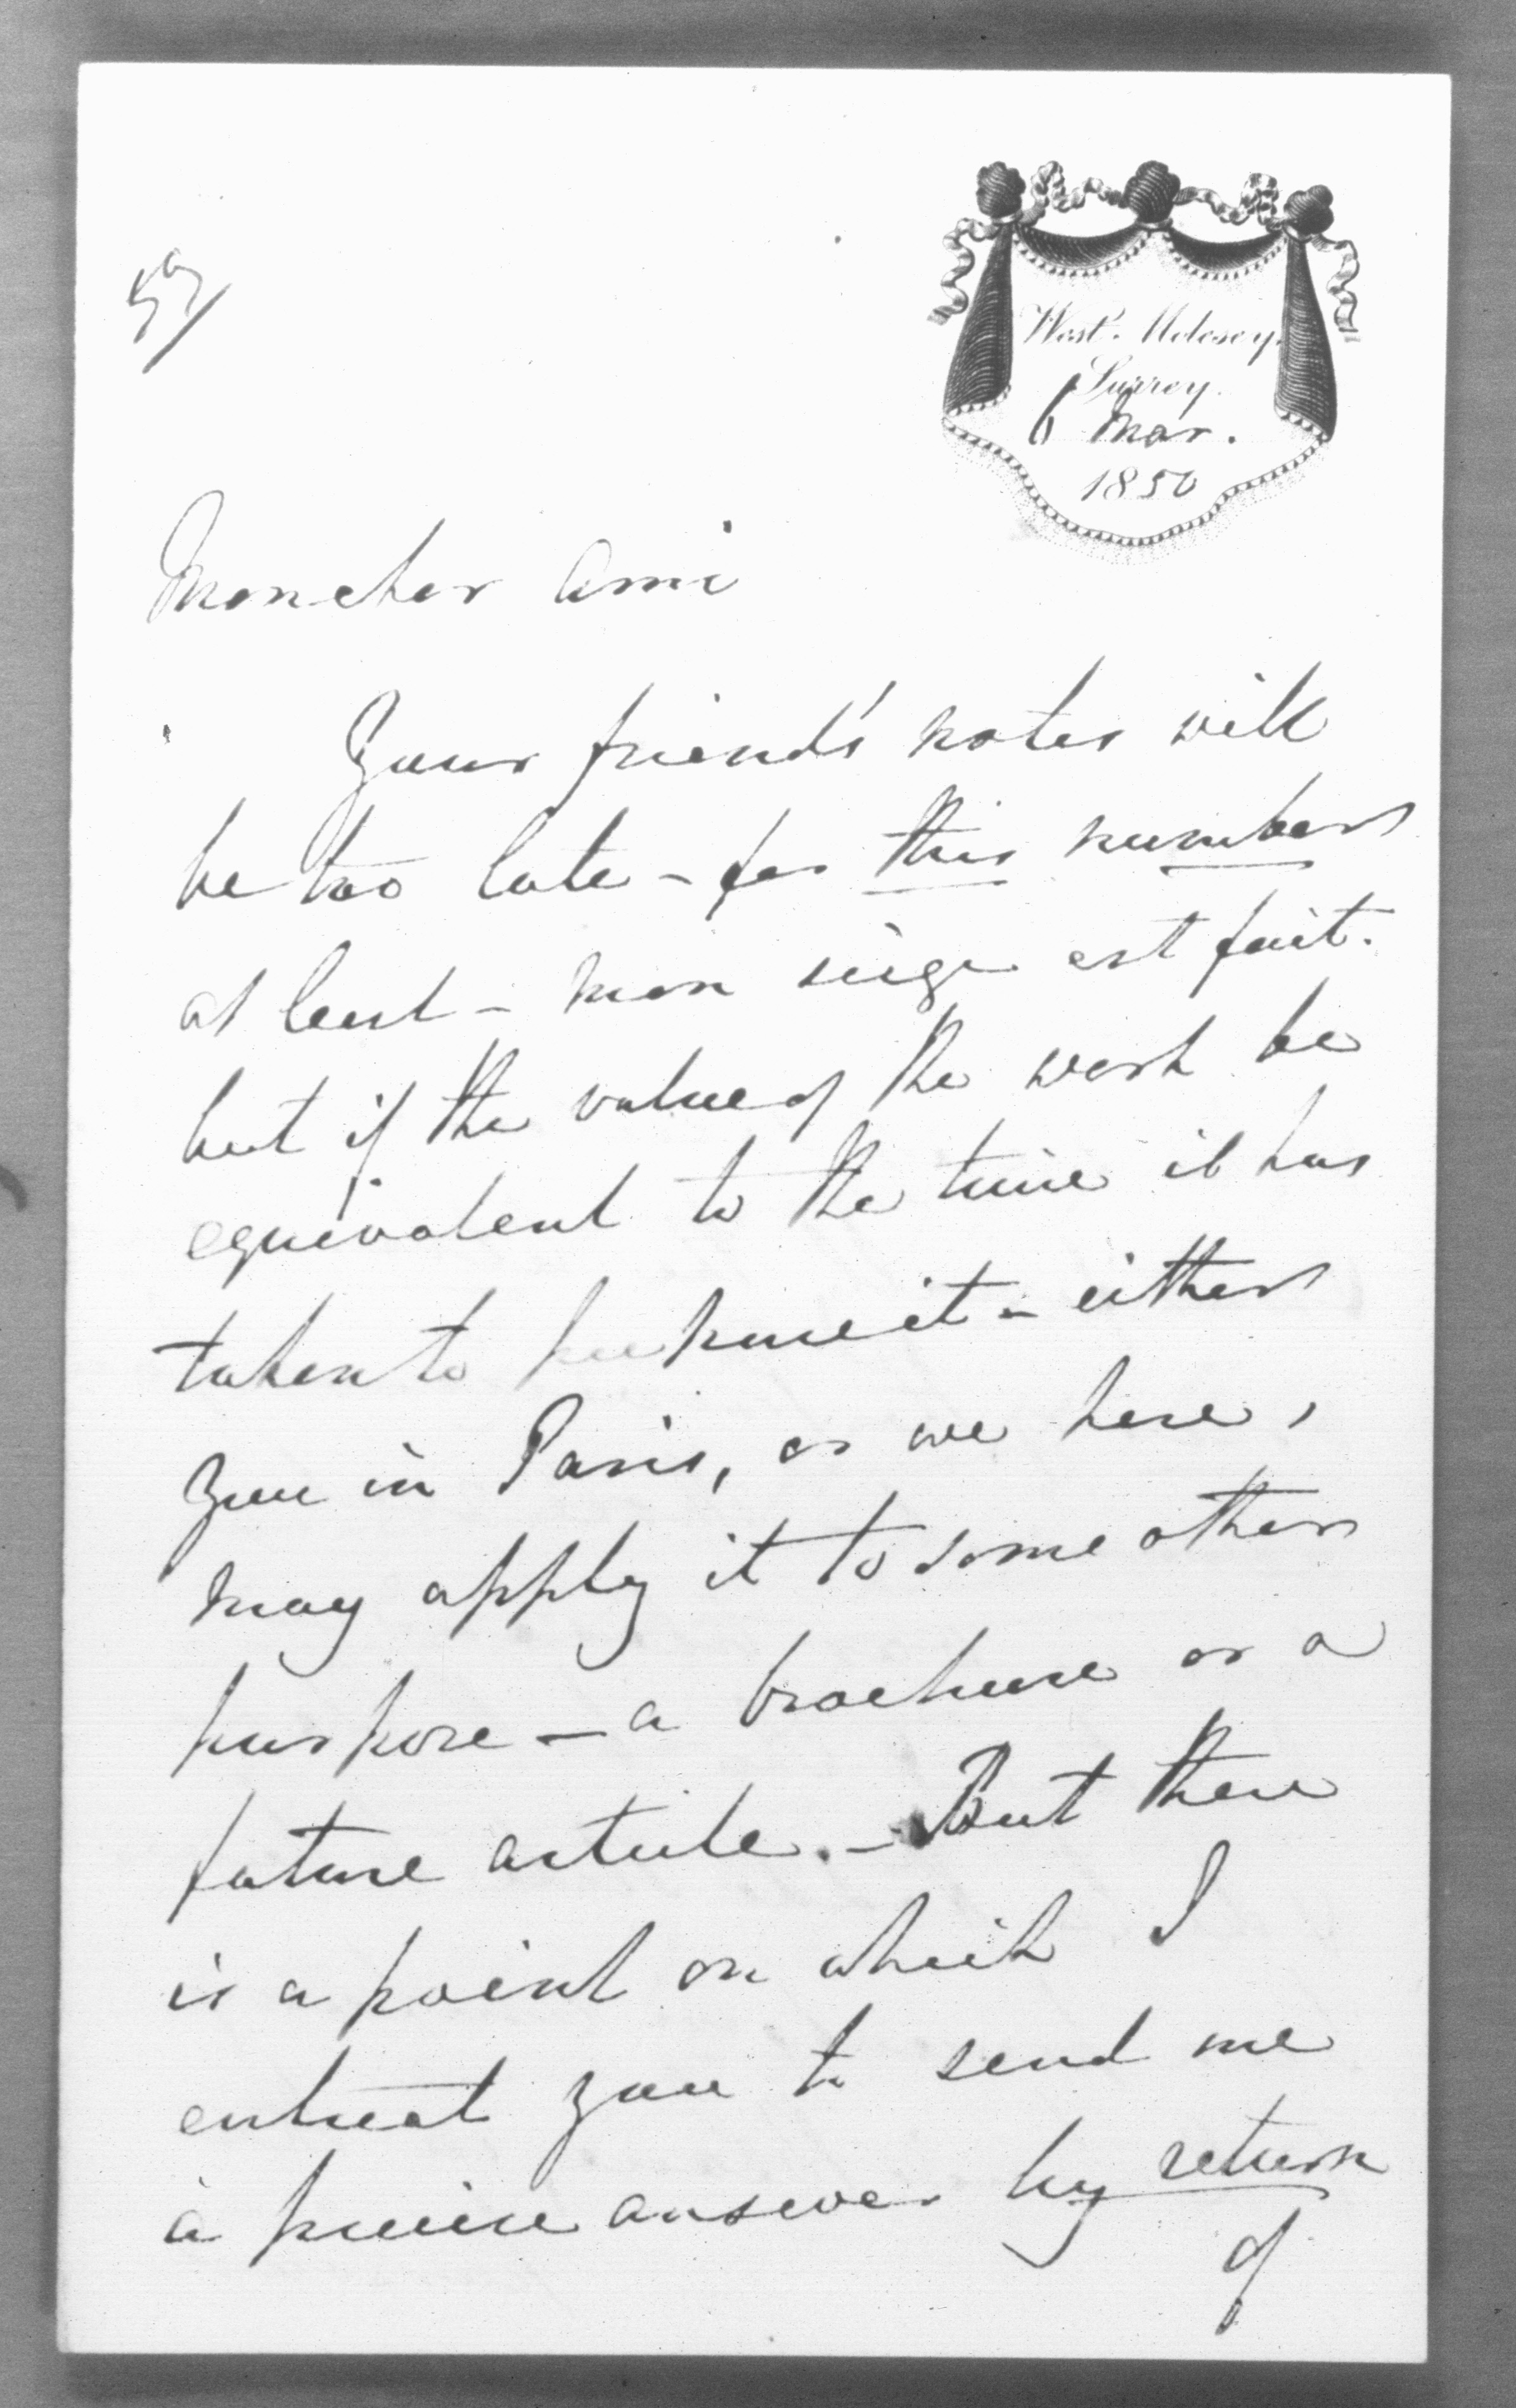 57
West Molesey,
Surrey.
6 Mar.
1850
Mon cher Ami
Your friend's notes will
be too late - for this number
at least - mon siège est fait.
but if the value of the work be
equivalent to the time it has
taken to prepare it - either
you in Paris, or we here,
may apply it to some other
purpose - a brochure or a
future article. - But there
is a point on which I
entreat you to send me
a precise answer by return
of